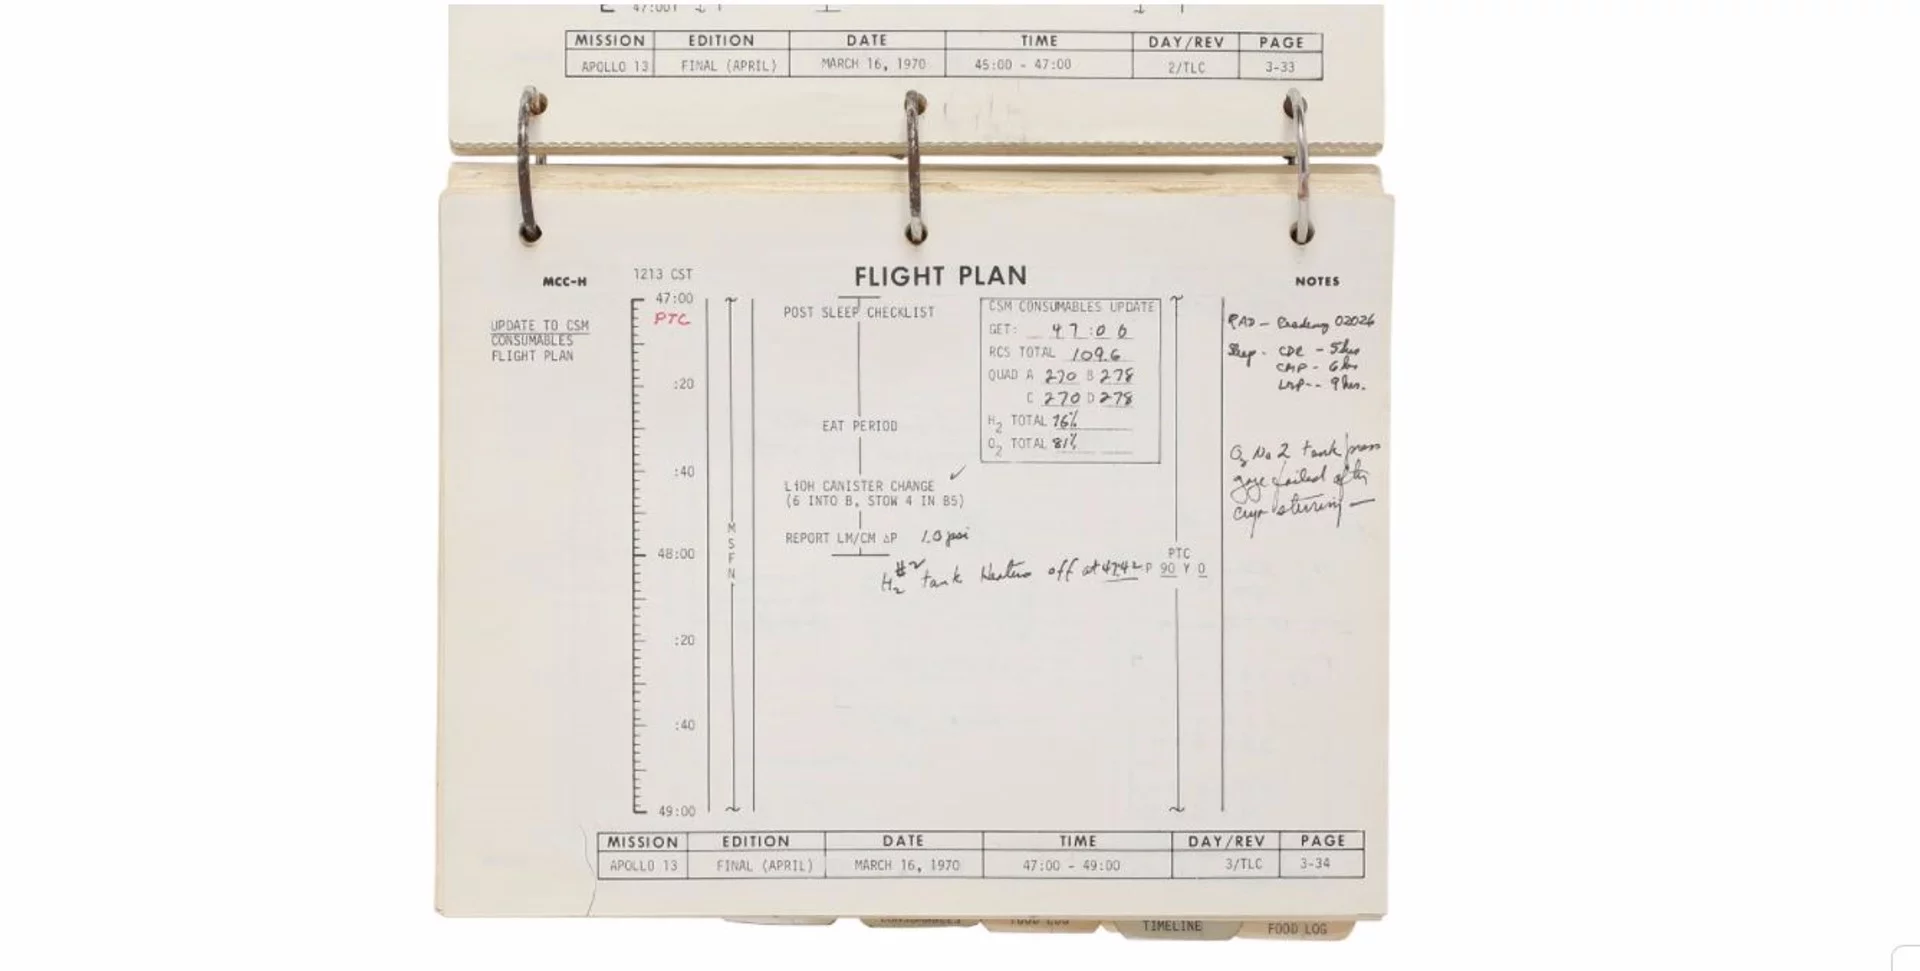 MISSION EDITION DATE TIME DAY/REV PAGE
APOLLO 13 FINAL (APRIL) MARCH 16, 1970 45:00 - 47:00 2/TLC 3-33
MCC-H
1213 CST
FLIGHT PLAN
NOTES
UPDATE TO CSM
CONSUMABLES
FLIGHT PLAN
47:00
PTC
:20
:40
48:00
:20
:40
49:00
M
S
F
N
POST SLEEP CHECKLIST
EAT PERIOD
LiOH CANISTER CHANGE ✓
(6 INTO B, STOW 4 IN B5)
REPORT LM/CM ΔP 1.0 psi
H2 #2 tank Heaters off at 47:42
CSM CONSUMABLES UPDATE
GET: 47:06
RCS TOTAL 109.6
QUAD A 270 B 278
C 270 D 278
H2 TOTAL 76%
O2 TOTAL 81%
PTC
P 90 Y 0
RAD - Reading 02026
Sleep - CDR - 5 hrs
CMP - 6 hrs
LMP - 9 hrs.
O2 No 2 tank press
gage failed after
cryo stirring —
MISSION EDITION DATE TIME DAY/REV PAGE
APOLLO 13 FINAL (APRIL) MARCH 16, 1970 47:00 - 49:00 3/TLC 3-34
CONSUMABLES FOOD LOG TIMELINE FOOD LOG